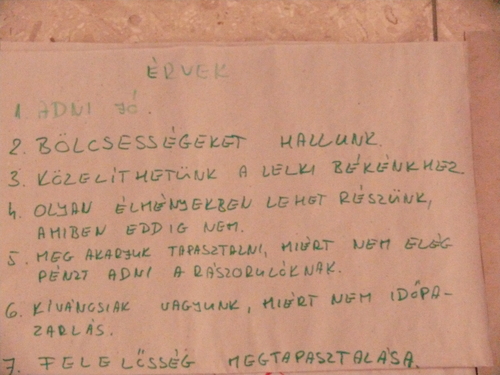 ÉRVEK
1. ADNI JÓ.
2. BÖLCSESSÉGEKET HALLUNK.
3. KÖZELÍTHETÜNK A LELKI BÉKÉNKHEZ
4. OLYAN ÉLMÉNYEKBEN LEHET RÉSZÜNK,
AMIBEN EDDIG NEM.
5. MEG AKARJUK TAPASZTALNI, MIÉRT NEM ELÉG
PÉNZT ADNI A RÁSZORULÓKNAK.
6. KÍVÁNCSIAK VAGYUNK, MIÉRT NEM IDŐPA-
ZARLÁS.
7. FELELŐSSÉG MEGTAPASZTALÁSA.